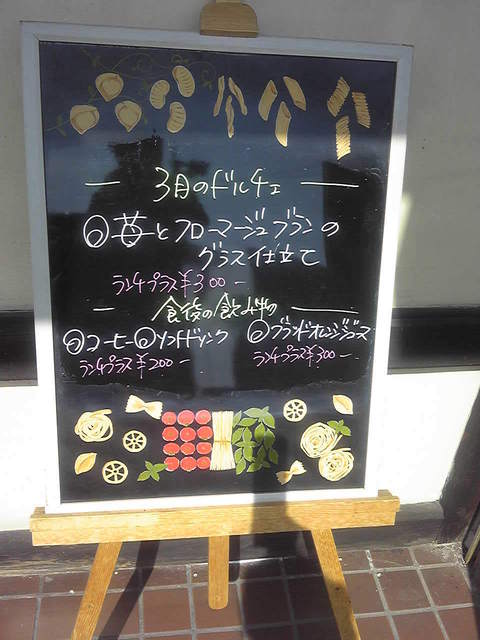 3月のドルチェ
◎苺とフロマージュブランの
グラス仕立て
ランチプラス¥300ー
食後の飲み物
◎コーヒー◎ソフトドリンク ◎ブラッドオレンジジュース
ランチプラス¥200ー ランチプラス¥300ー